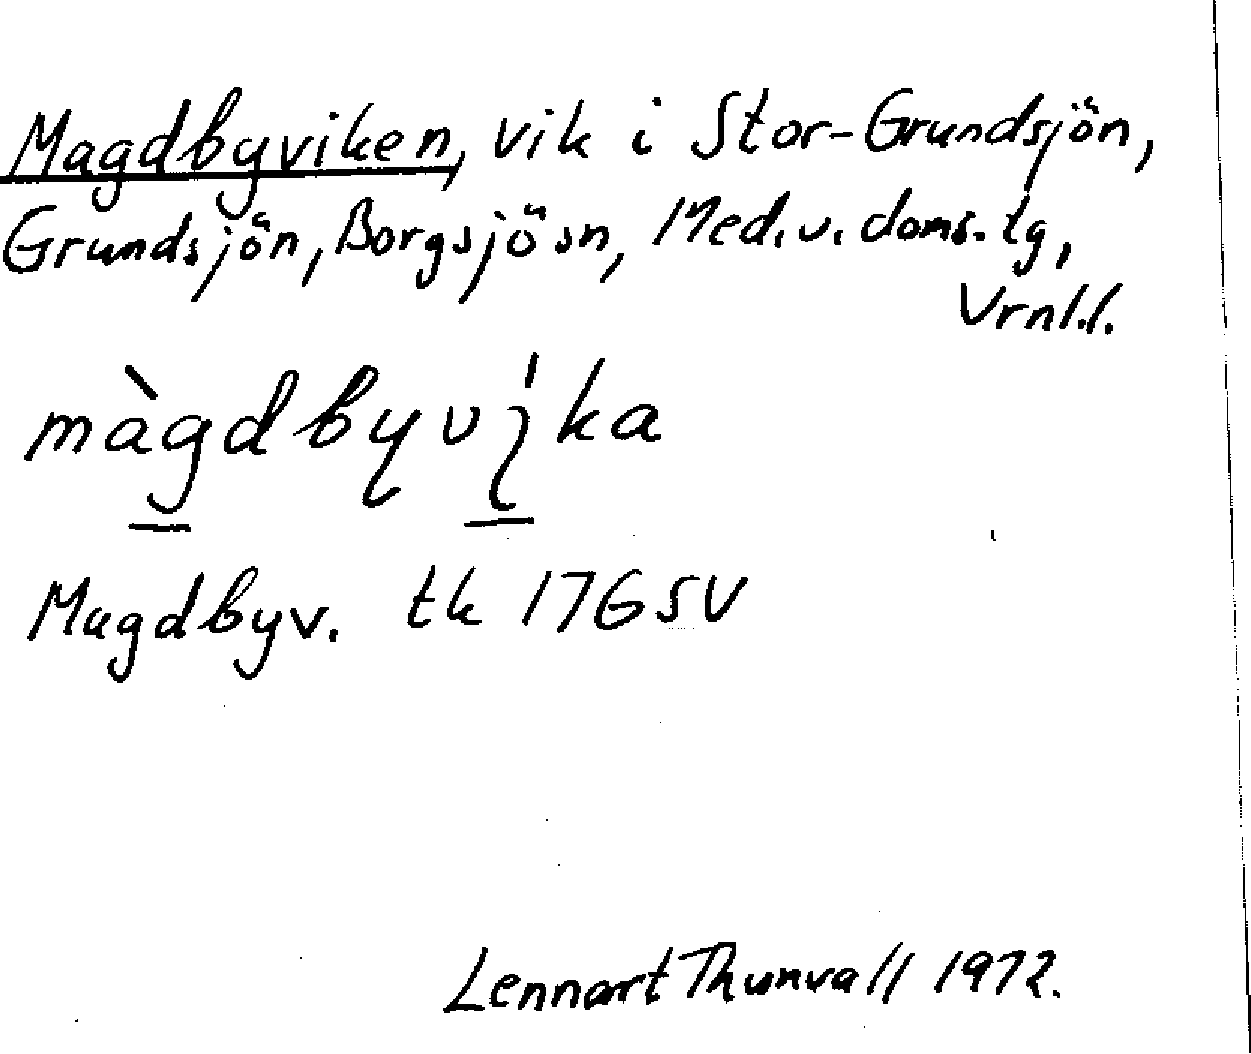 Magdbyviken, vik i Stor-Grundsjön,
Grundsjön, Borgsjö sn, Med.v.doms.tg,
Vrnl.l.
màgdbyvi̢ka
Magdbyv. tk 17G SV
Lennart Thunvall 1972.